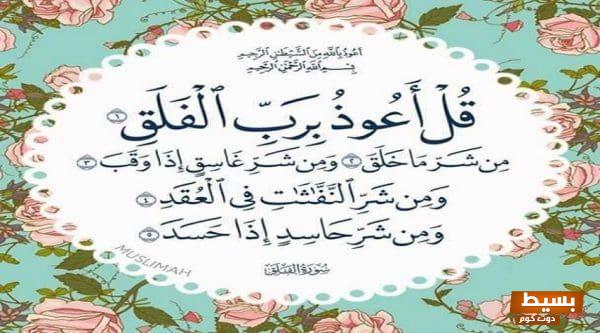 اعوذ بالله من الشيطن الرجيم
بسم الله الرحمن الرحيم
قُلْ أَعُوذُ بِرَبِّ الْفَلَقِ ١
مِن شَرِّ مَا خَلَقَ ٢ وَمِن شَرِّ غَاسِقٍ إِذَا وَقَبَ ٣
وَمِن شَرِّ النَّفَّٰثَٰتِ فِي الْعُقَدِ ٤
وَمِن شَرِّ حَاسِدٍ إِذَا حَسَدَ ٥
سورة الفلق
MUSLIMAH
بسيط
دوت كوم